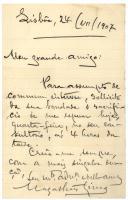 Lisboa, 24/VII/1907
Meu grande amigo:
Para assumpto de
commum interesse, sollicito
da sua bondade o sacrifi-
cio de me esperar hoje,
quarta-feira, no seu con-
sultorio, ás 4 horas da
tarde.
Creia-me sempre,
com a mais singular
Seu
Magalhães Lima